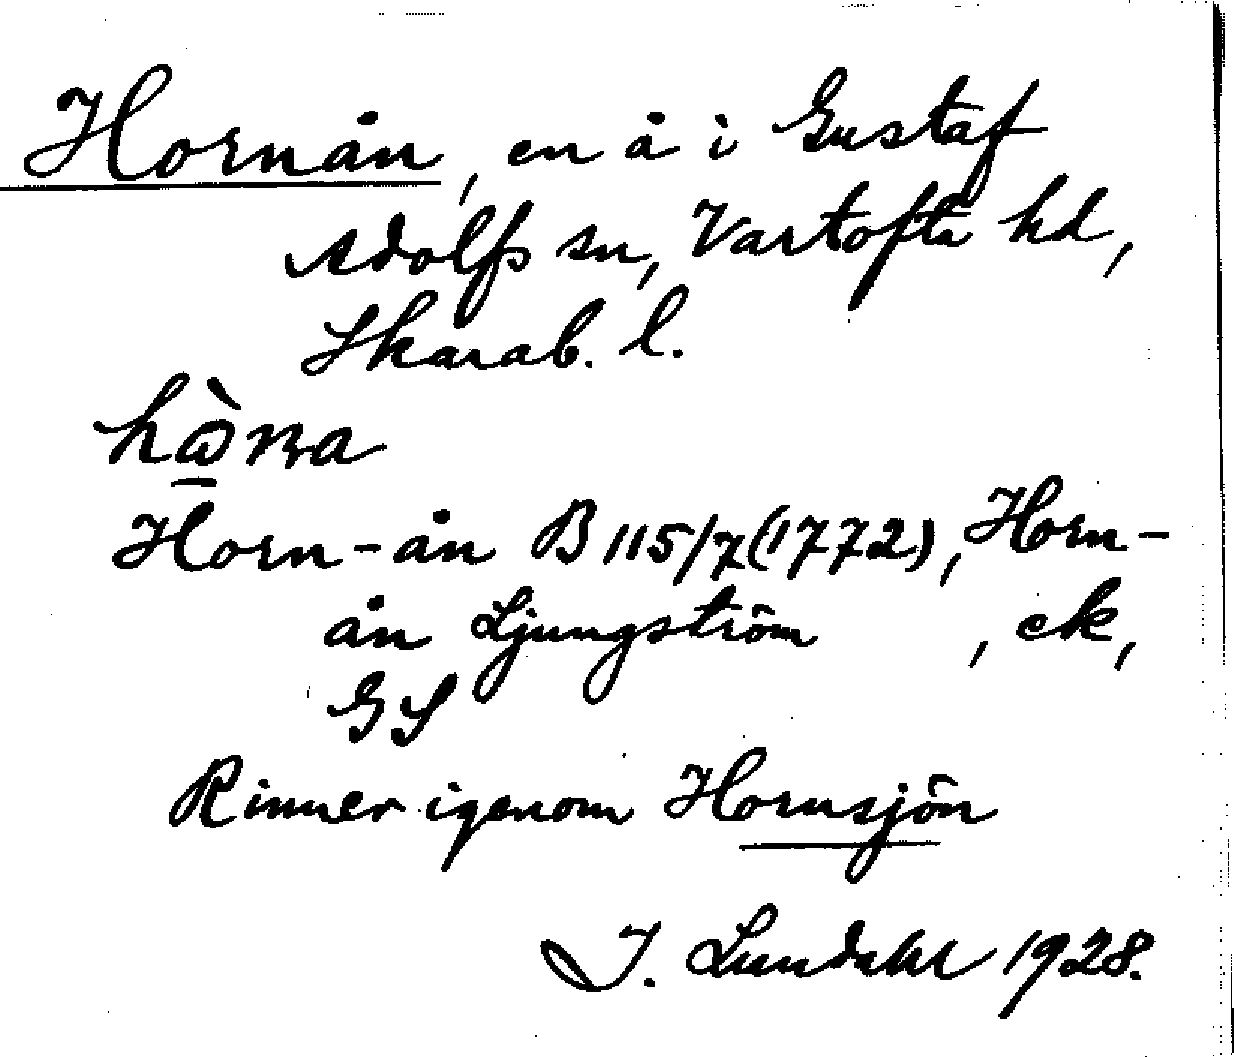 Hornån, en å i Gustaf
Adolfs sn, Vartofta hd,
Skarab. l.
Horn-ån B 115/7 (1772), Horn-
ån Ljungström , ek,
GS
Rinner igenom Hornsjön
I. Lundahl 1928.